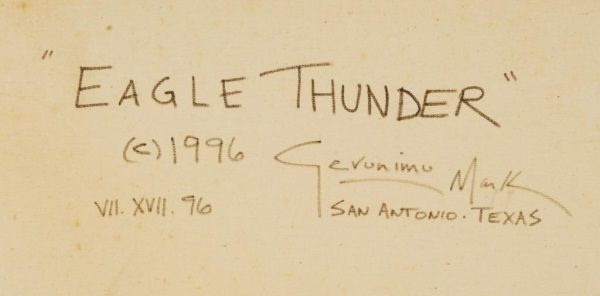 "EAGLE THUNDER"
(c) 1996 Geronimo Mark
VII. XVII. 96 SAN ANTONIO. TEXAS